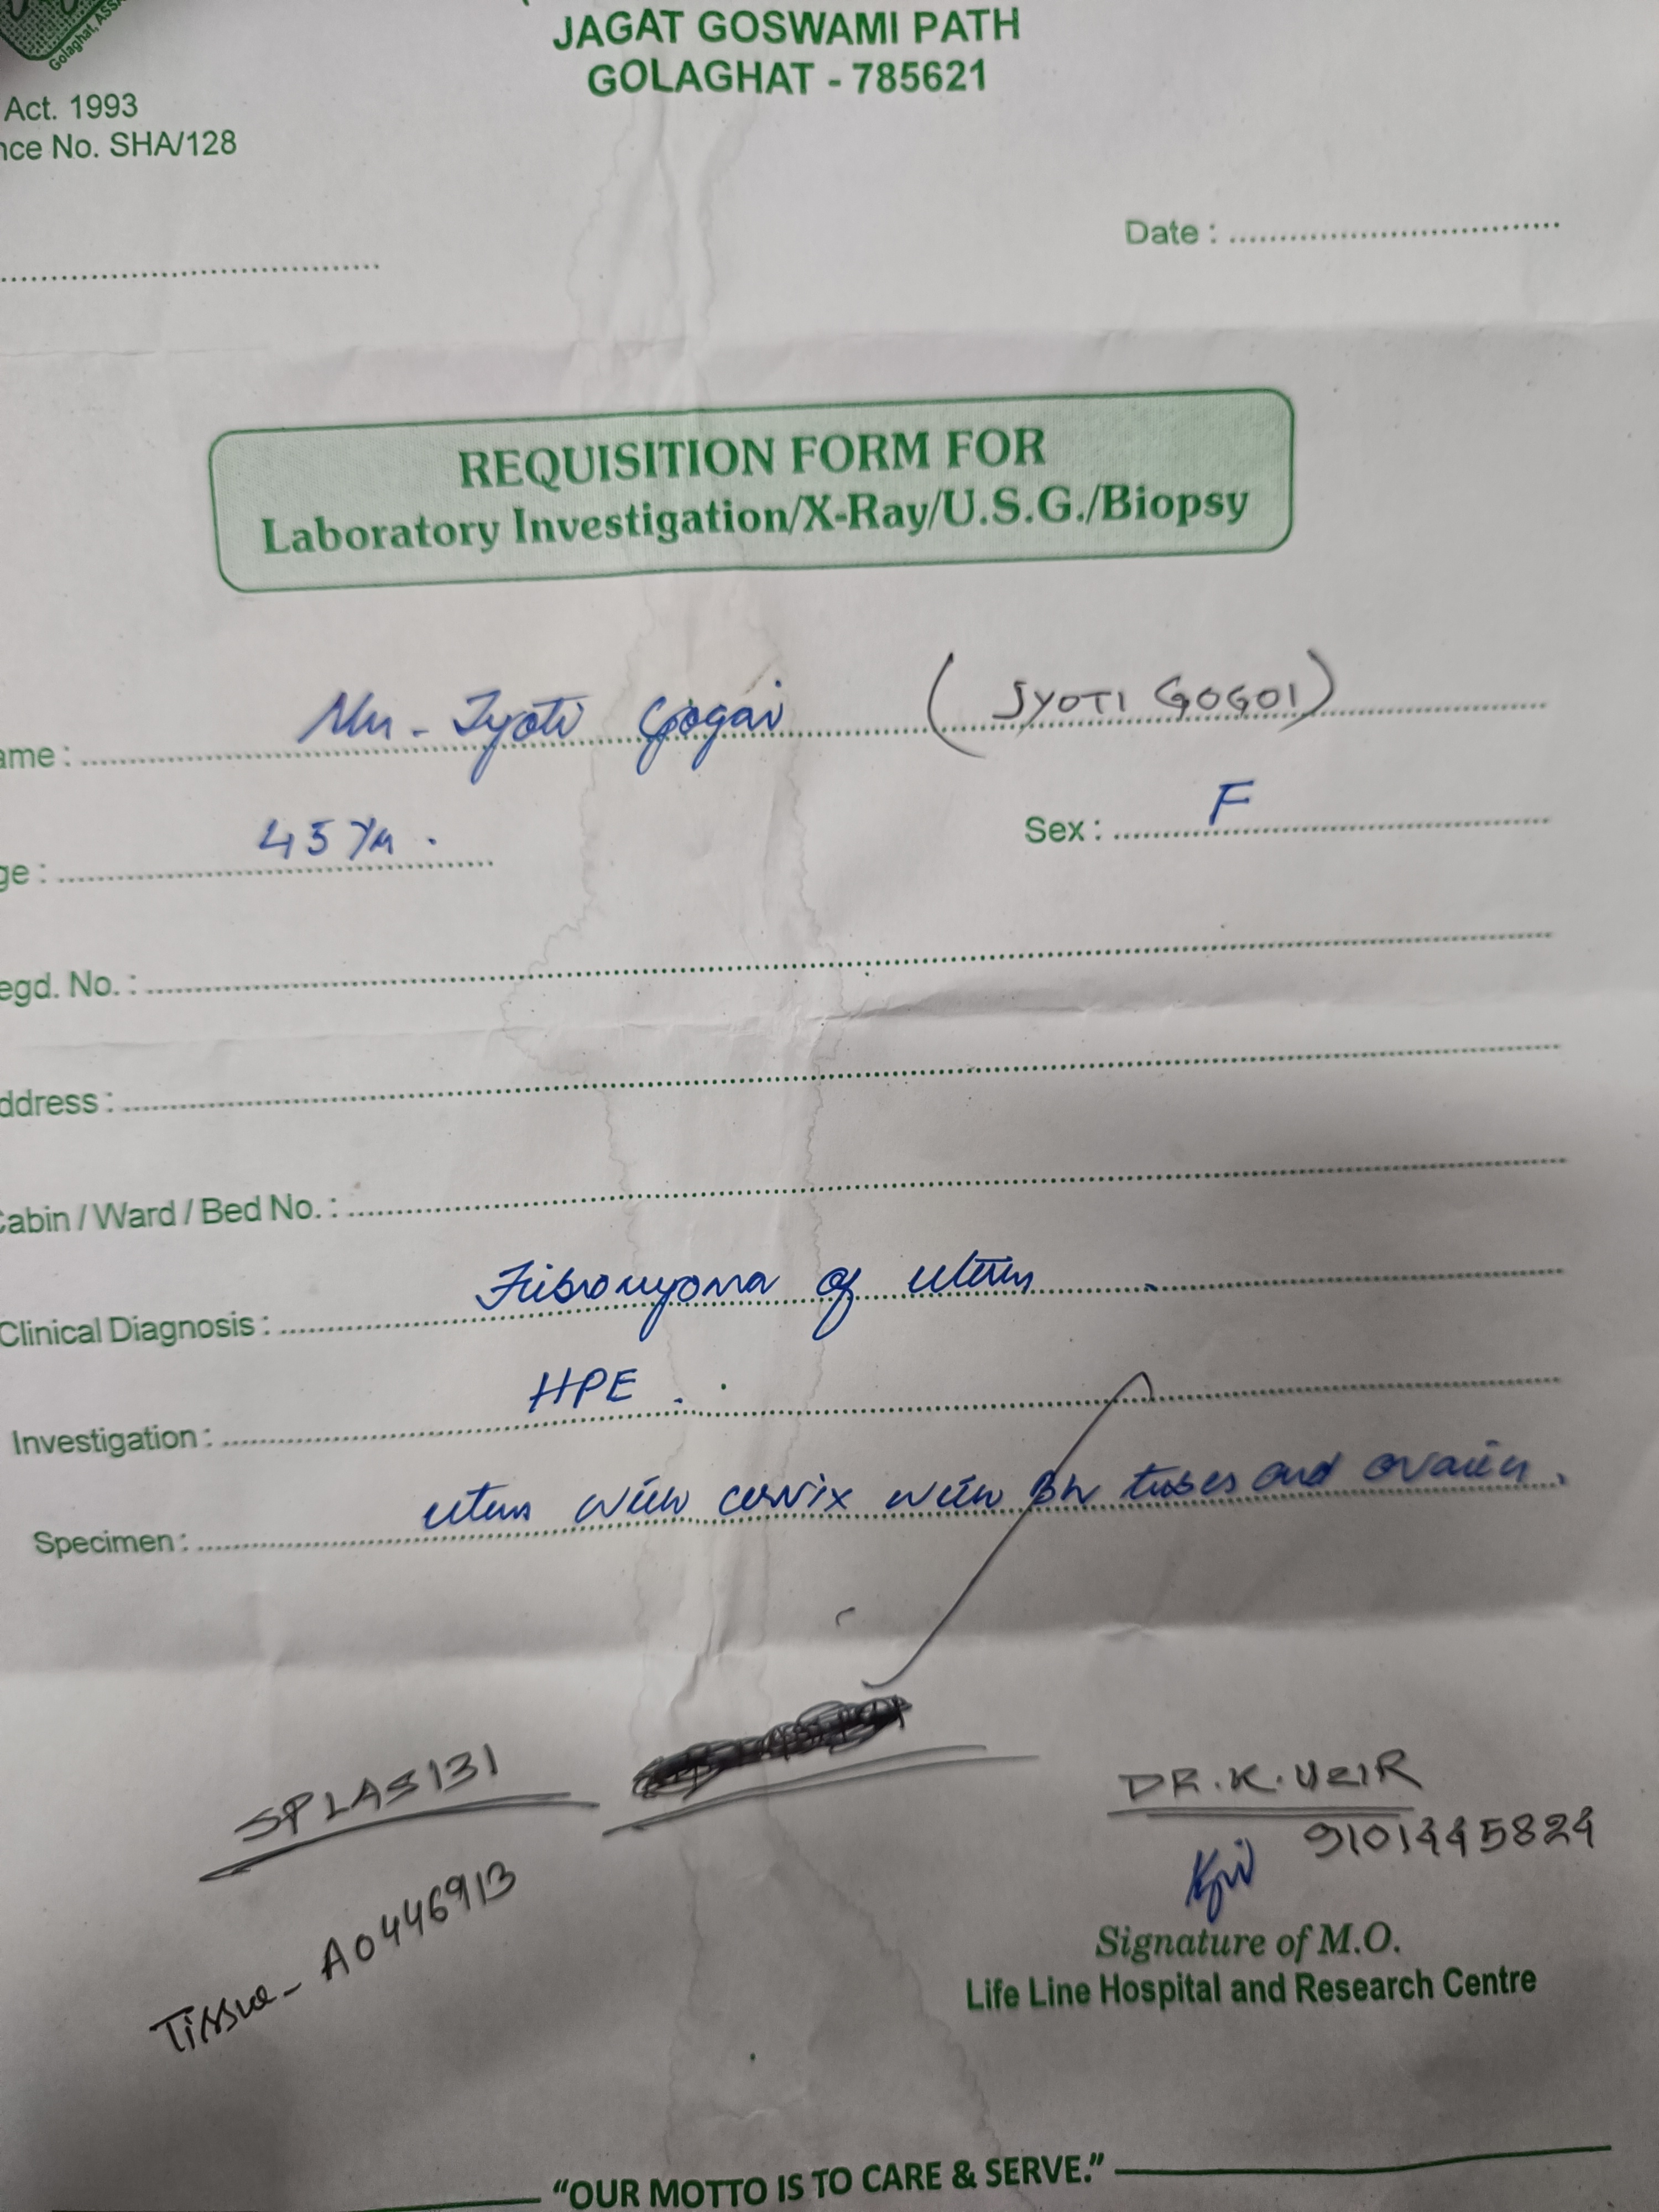 Golaghat, ASSA
JAGAT GOSWAMI PATH
GOLAGHAT - 785621
Act. 1993
nce No. SHA/128
Date :
REQUISITION FORM FOR
Laboratory Investigation/X-Ray/U.S.G./Biopsy
ame : Jyoti Gogoi (JYOTI GOGOI)
ge : 45 Yrs. Sex : F
egd. No. :
ddress :
Cabin / Ward / Bed No. :
Clinical Diagnosis : Fibromyoma of uterus
Investigation : HPE.
Specimen : uterus with cervix with tubes and ovaries.
SPLAS131
DR. K. UZIR
Tissue - A0446913
Signature of M.O.
Life Line Hospital and Research Centre
"OUR MOTTO IS TO CARE & SERVE."